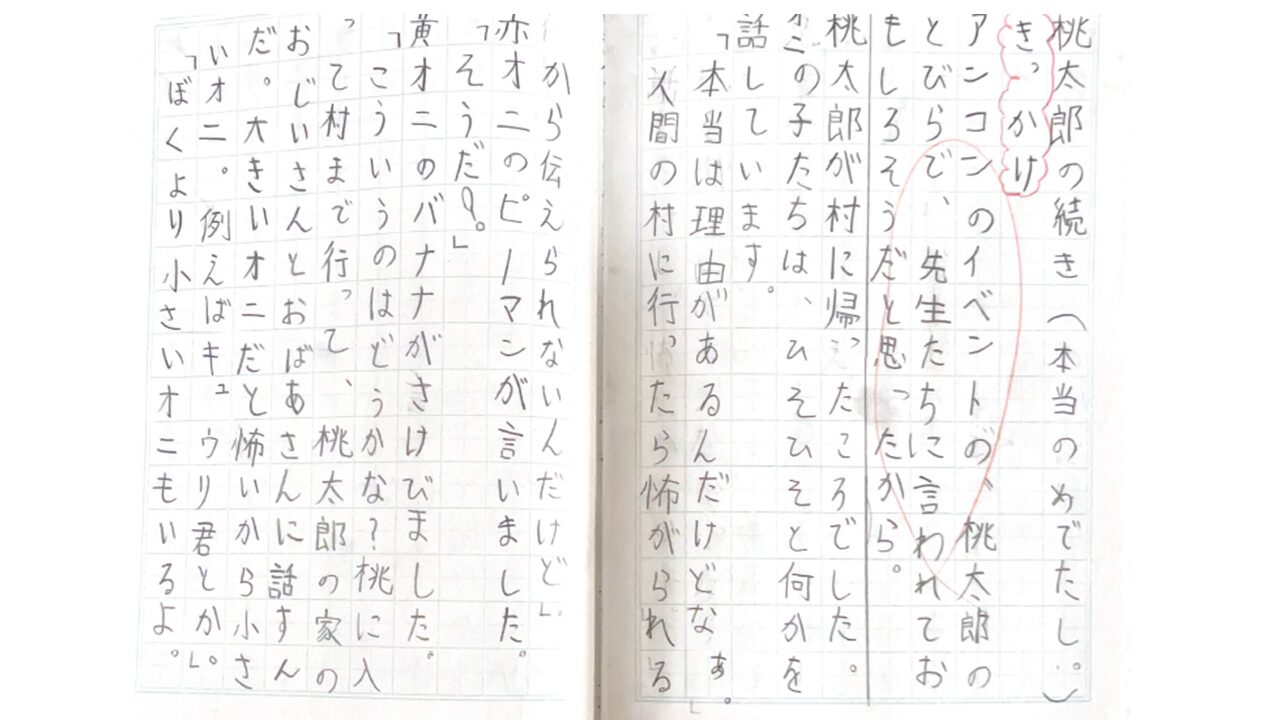 桃太郎の続き(本当のめでたし。)
きっかけ
アンコンのイベントの、桃太郎の
とびらで、先生たちに言われてお
もしろそうだと思ったから。
桃太郎が村に帰ったころでした。
オニの子たちは、ひそひそと何かを
話しています。
「本当は理由があるんだけどなぁ。
人間の村に行ったら怖がられる
から伝えられないんだけど」
赤オニのピーマンが言いました。
「そうだ。」
黄オニのバナナがさけびました。
「こういうのはどうかな?桃に入
って村まで行って、桃太郎の家の
おじいさんとおばあさんに話すん
だ。大きいオニだと怖いから小さ
いオニ。例えばキュウリ君とか。」
「ぼくより小さいオニもいるよ。